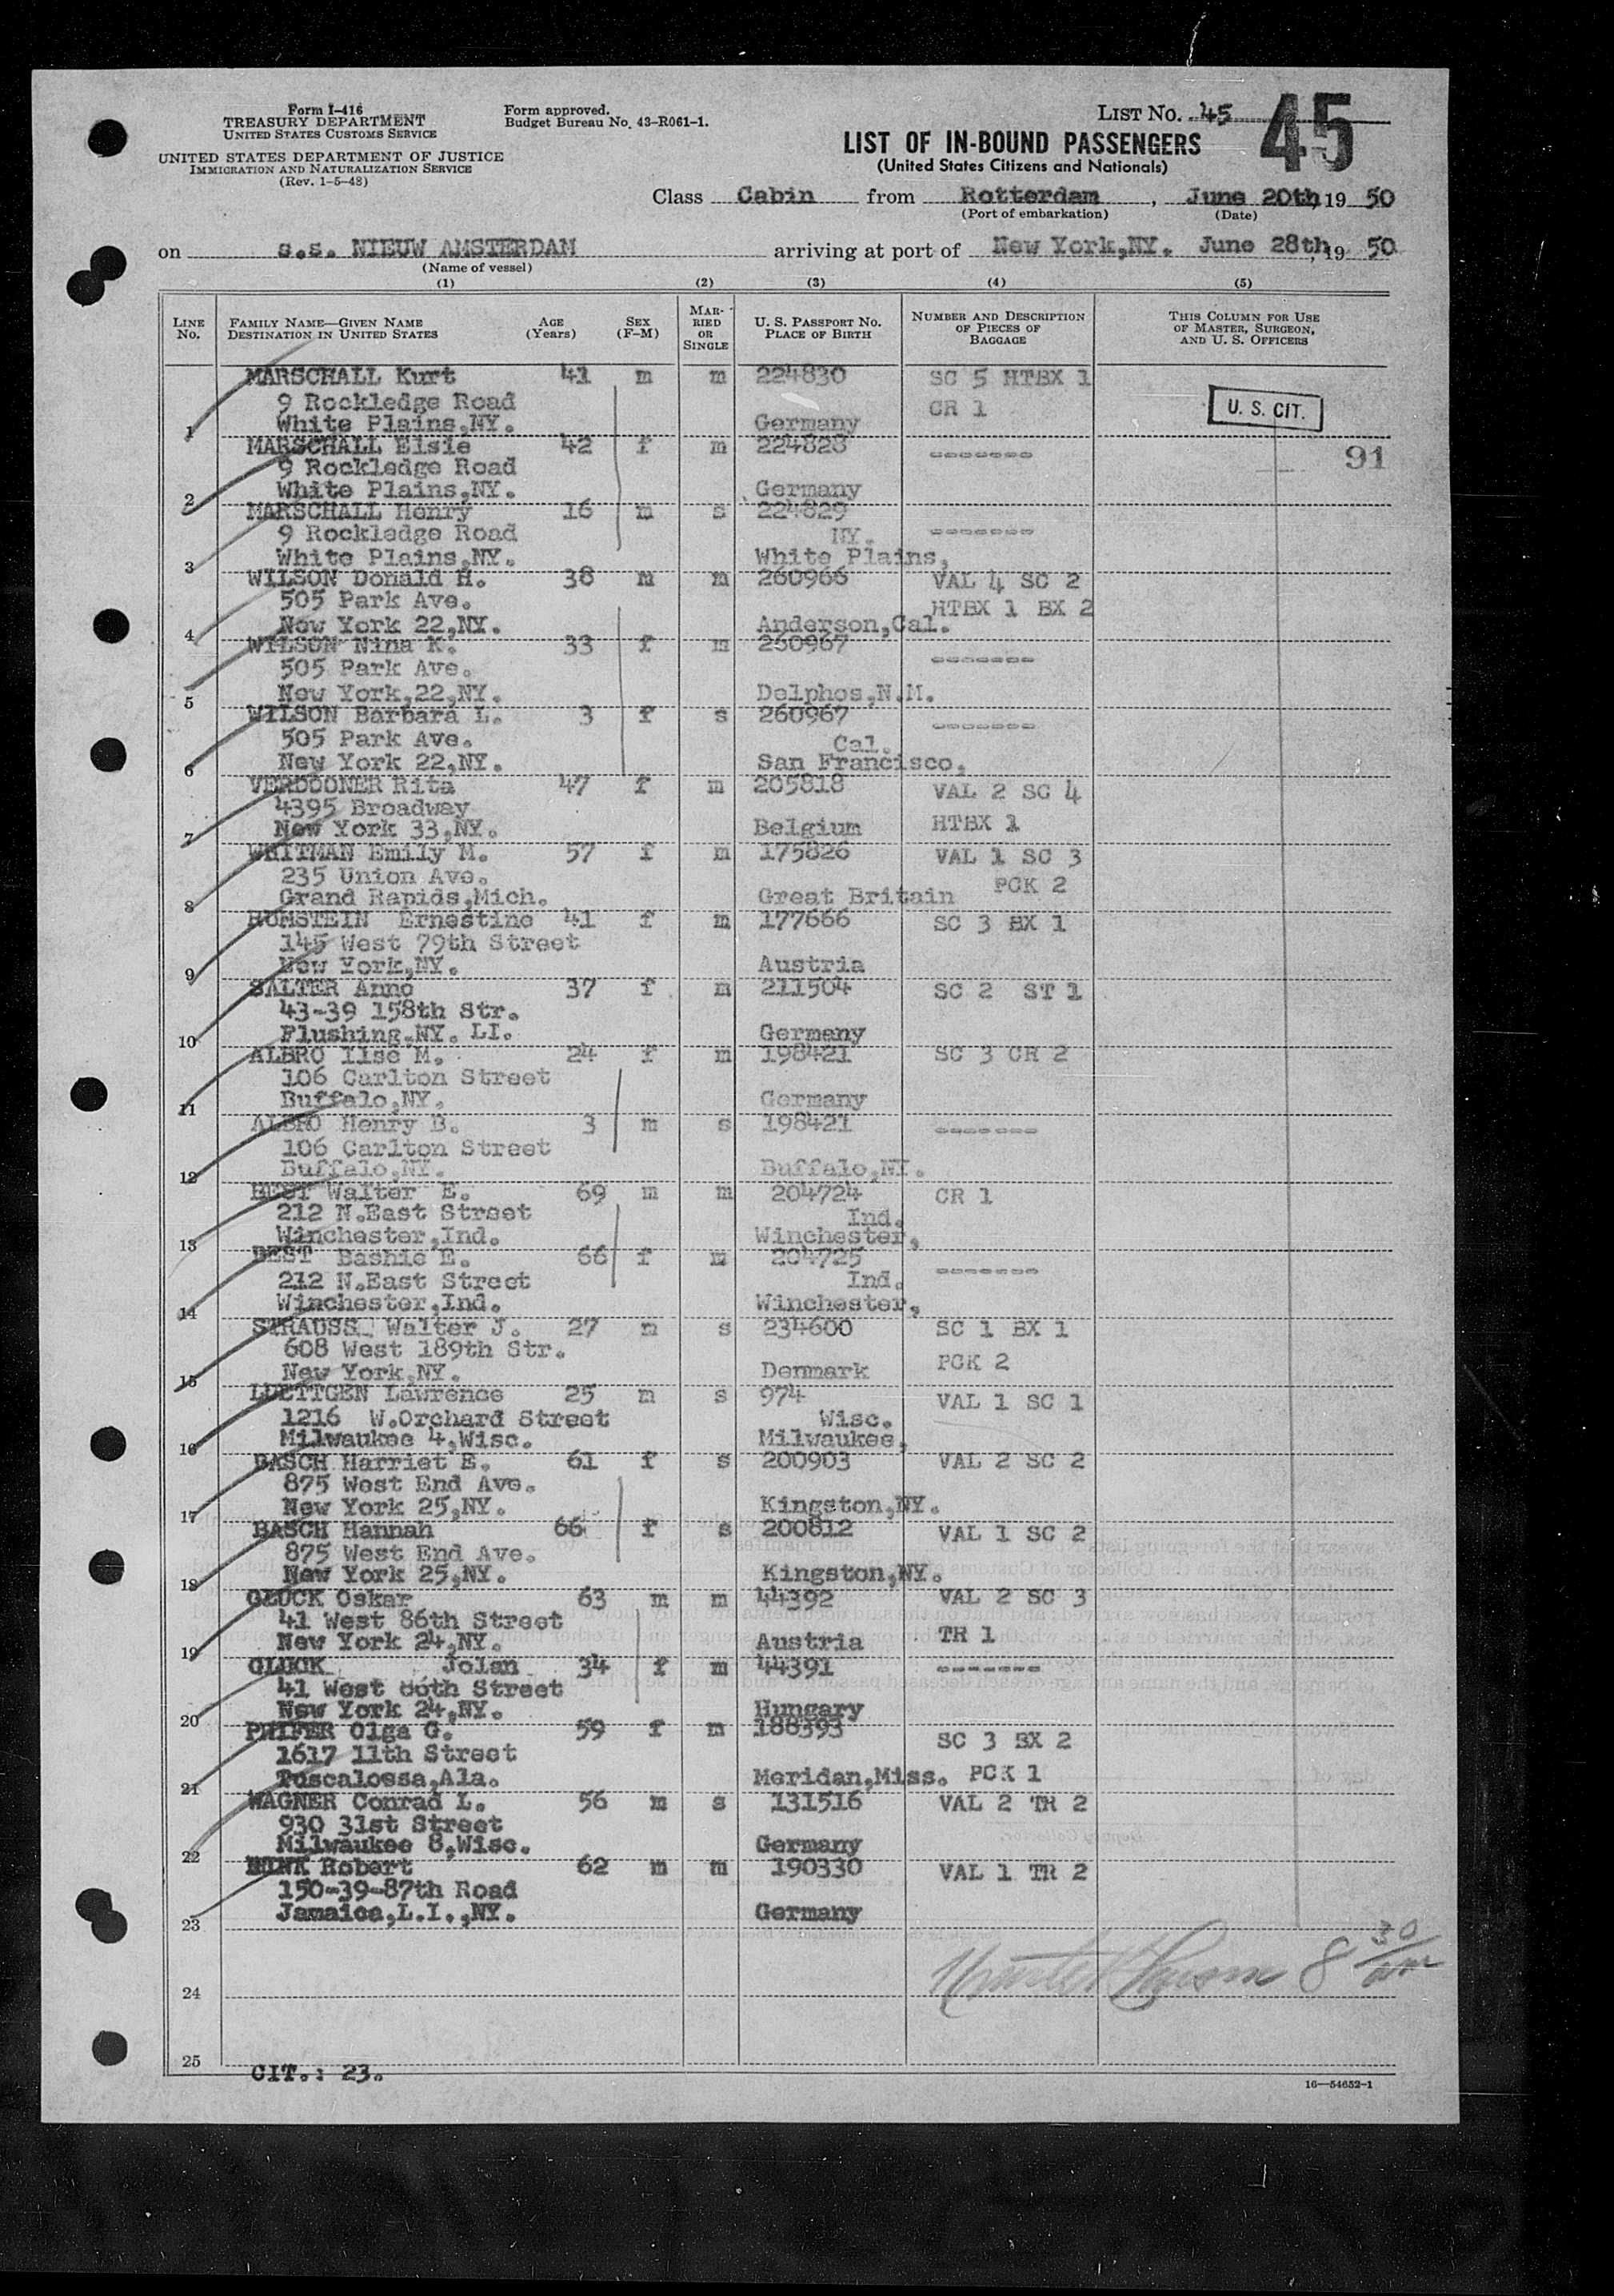 Form I-416
TREASURY DEPARTMENT
UNITED STATES CUSTOMS SERVICE
UNITED STATES DEPARTMENT OF JUSTICE
IMMIGRATION AND NATURALIZATION SERVICE
(Rev. 1-5-48)
Form approved.
Budget Bureau No. 43-R061-1.
LIST No. 45
45
LIST OF IN-BOUND PASSENGERS
(United States Citizens and Nationals)
Class Cabin from Rotterdam, June 20th, 19 50
(Port of embarkation) (Date)
on s.s. NIEUW AMSTERDAM arriving at port of New York,NY. June 28th, 19 50
(Name of vessel)
(1) (2) (3) (4) (5)
LINE No. FAMILY NAME—GIVEN NAME DESTINATION IN UNITED STATES AGE (Years) SEX (F-M) MARRIED OR SINGLE U. S. PASSPORT No. PLACE OF BIRTH NUMBER AND DESCRIPTION OF PIECES OF BAGGAGE THIS COLUMN FOR USE OF MASTER, SURGEON, AND U. S. OFFICERS
MARSCHALL Kurt 41 m m 224830 SC 5 HTBX 1
9 Rockledge Road CR 1 U. S. CIT.
1 White Plains,NY. Germany
MARSCHALL Elsie 42 f m 224828 -------
9 Rockledge Road 91
2 White Plains,NY. Germany
MARSCHALL Henry 16 m s 224829
9 Rockledge Road NY. -------
3 White Plains,NY. White Plains,
WILSON Donald H. 38 m m 260966 VAL 4 SC 2
505 Park Ave. HTBX 1 BX 2
4 New York 22,NY. Anderson,Cal.
WILSON Nina K. 33 f m 260967 -------
505 Park Ave.
5 New York,22,NY. Delphos,N.M.
WILSON Barbara L. 3 f s 260967 -------
505 Park Ave. Cal.
6 New York 22,NY. San Francisco,
VERDOONER Rita 47 f m 205818 VAL 2 SC 4
4395 Broadway
7 New York 33,NY. Belgium HTBX 1
WHITMAN Emily M. 57 f m 175826 VAL 1 SC 3
235 Union Ave. PCK 2
8 Grand Rapids,Mich. Great Britain
Ernestine 41 f m 177666 SC 3 BX 1
145 West 79th Street
9 New York,NY. Austria
SALTER Anne 37 f m 211504 SC 2 ST 1
43-39 158th Str.
10 Flushing,NY. LI. Germany
ALBRO Ilse M. 24 f m 198421 SC 3 CR 2
106 Carlton Street
11 Buffalo,NY. Germany
ALBRO Henry B. 3 m s 198421 -------
106 Carlton Street
12 Buffalo,NY. Buffalo,NY.
BEST Walter E. 69 m m 204724 CR 1
212 N.East Street Ind.
13 Winchester,Ind. Winchester,
BEST Bashie E. 66 f m 204725
212 N.East Street Ind. -------
14 Winchester,Ind. Winchester,
STRAUSS Walter J. 27 m s 234600 SC 1 BX 1
608 West 189th Str. PCK 2
15 New York,NY. Denmark
LUETTGEN Lawrence 25 m s 974 VAL 1 SC 1
1216 W.Orchard Street Wisc.
16 Milwaukee 4,Wisc. Milwaukee,
BASCH Harriet E. 61 f s 200903 VAL 2 SC 2
875 West End Ave.
17 New York 25,NY. Kingston,NY.
BASCH Hannah 66 f s 200812 VAL 1 SC 2
875 West End Ave.
18 New York 25,NY. Kingston,NY.
GLUCK Oskar 63 m m 44392 VAL 2 SC 3
41 West 86th Street
19 New York 24,NY. Austria TR 1
GLUCK Jolan 34 f m 44391 -------
41 West 86th Street
20 New York 24,NY. Hungary
PHIFER Olga G. 59 f m 188393 SC 3 BX 2
1617 11th Street
21 Tuscaloosa,Ala. Meridan,Miss. PCK 1
WAGNER Conrad L. 56 m s 131516 VAL 2 TR 2
930 31st Street
22 Milwaukee 8,Wisc. Germany
Robert 62 m m 190330 VAL 1 TR 2
150-39-87th Road
23 Jamaica,L.I.,NY. Germany
8 30
24
25
CIT.: 23.
16—54652-1